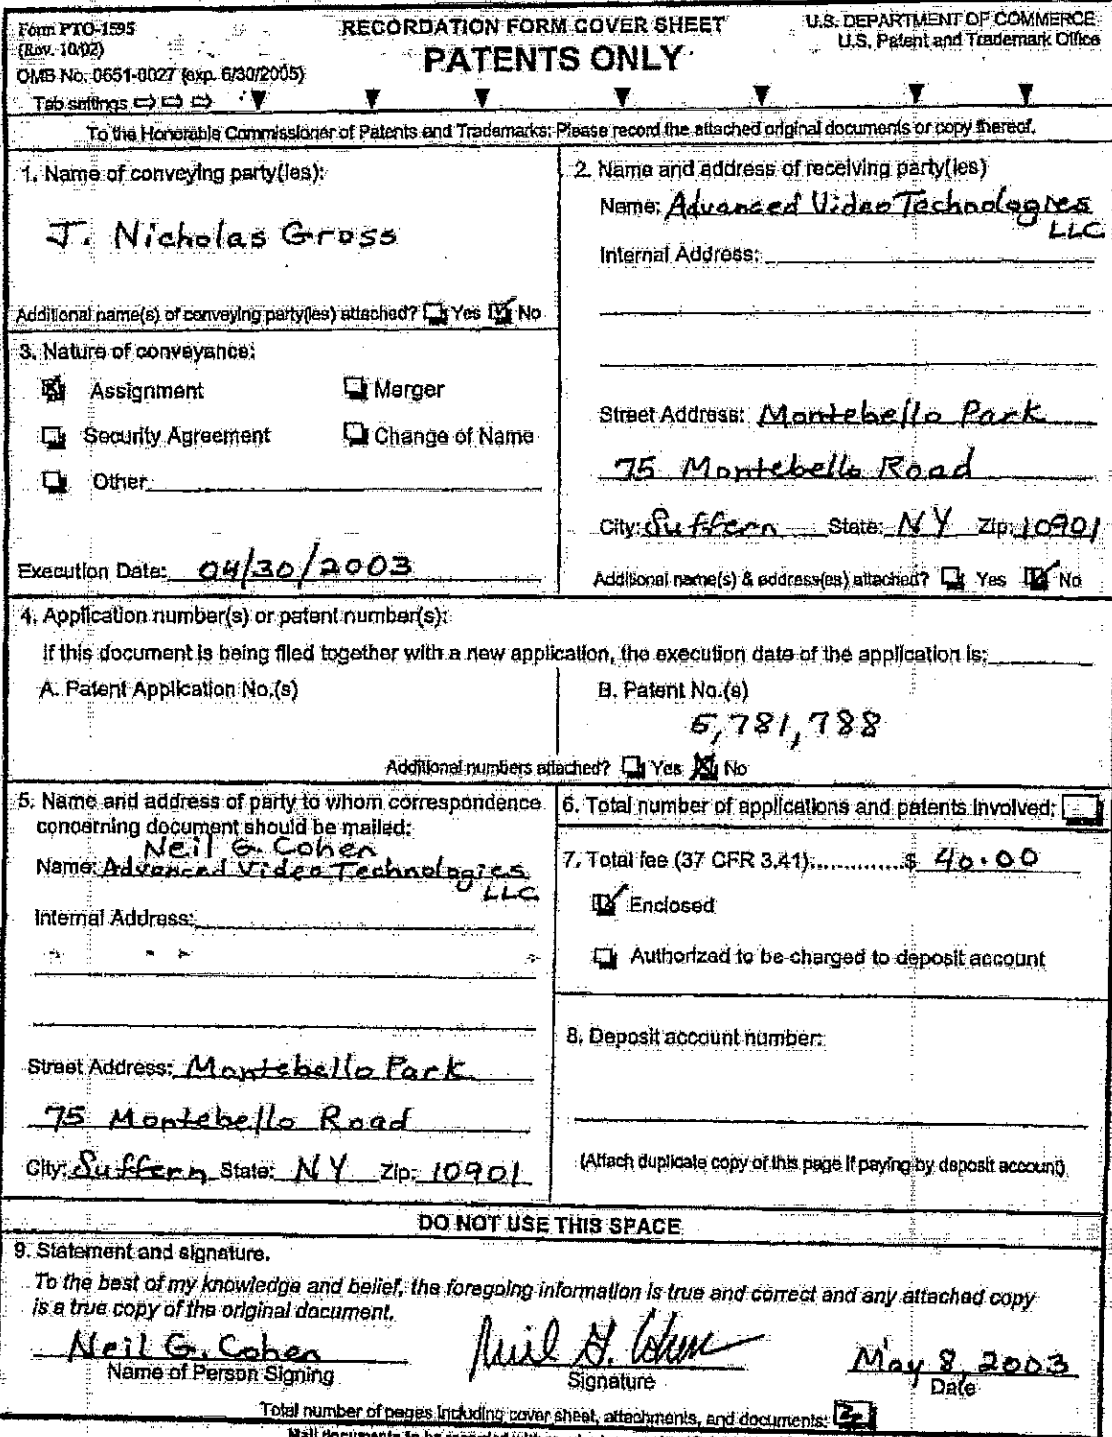 Form PTO-1595
(Rev. 10/02)
OMB No. 0651-0027 (exp. 6/30/2005)
Tab settings
RECORDATION FORM COVER SHEET
PATENTS ONLY
U.S. DEPARTMENT OF COMMERCE
U.S. Patent and Trademark Office
To the Honorable Commissioner of Patents and Trademarks: Please record the attached original documents or copy thereof.
1. Name of conveying party(ies):
J. Nicholas Gross
Additional name(s) of conveying party(ies) attached? Yes No
2. Name and address of receiving party(ies)
Name: Advanced Video Technologies
LLC
Internal Address:
Street Address: Montebello Park
75 Montebello Road
City: Suffern State: NY Zip: 10901
Additional name(s) & address(es) attached? Yes No
3. Nature of conveyance:
Assignment Merger
Security Agreement Change of Name
Other
Execution Date: 04/30/2003
4. Application number(s) or patent number(s):
If this document is being filed together with a new application, the execution date of the application is:
A. Patent Application No.(s)
B. Patent No.(s)
5,781,788
Additional numbers attached? Yes No
5. Name and address of party to whom correspondence
concerning document should be mailed:
Neil G. Cohen
Name: Advanced Video Technologies
LLC
Internal Address:
Street Address: Montebello Park
75 Montebello Road
City: Suffern State: NY Zip: 10901
6. Total number of applications and patents involved:
7. Total fee (37 CFR 3.41)..............$ 40.00
Enclosed
Authorized to be charged to deposit account
8. Deposit account number:
(Attach duplicate copy of this page if paying by deposit account)
DO NOT USE THIS SPACE
9. Statement and signature.
To the best of my knowledge and belief, the foregoing information is true and correct and any attached copy
is a true copy of the original document.
Neil G. Cohen
Name of Person Signing
Neil G. Cohen
Signature
May 8, 2003
Date
Total number of pages including cover sheet, attachments, and documents:
Mail documents to be recorded with